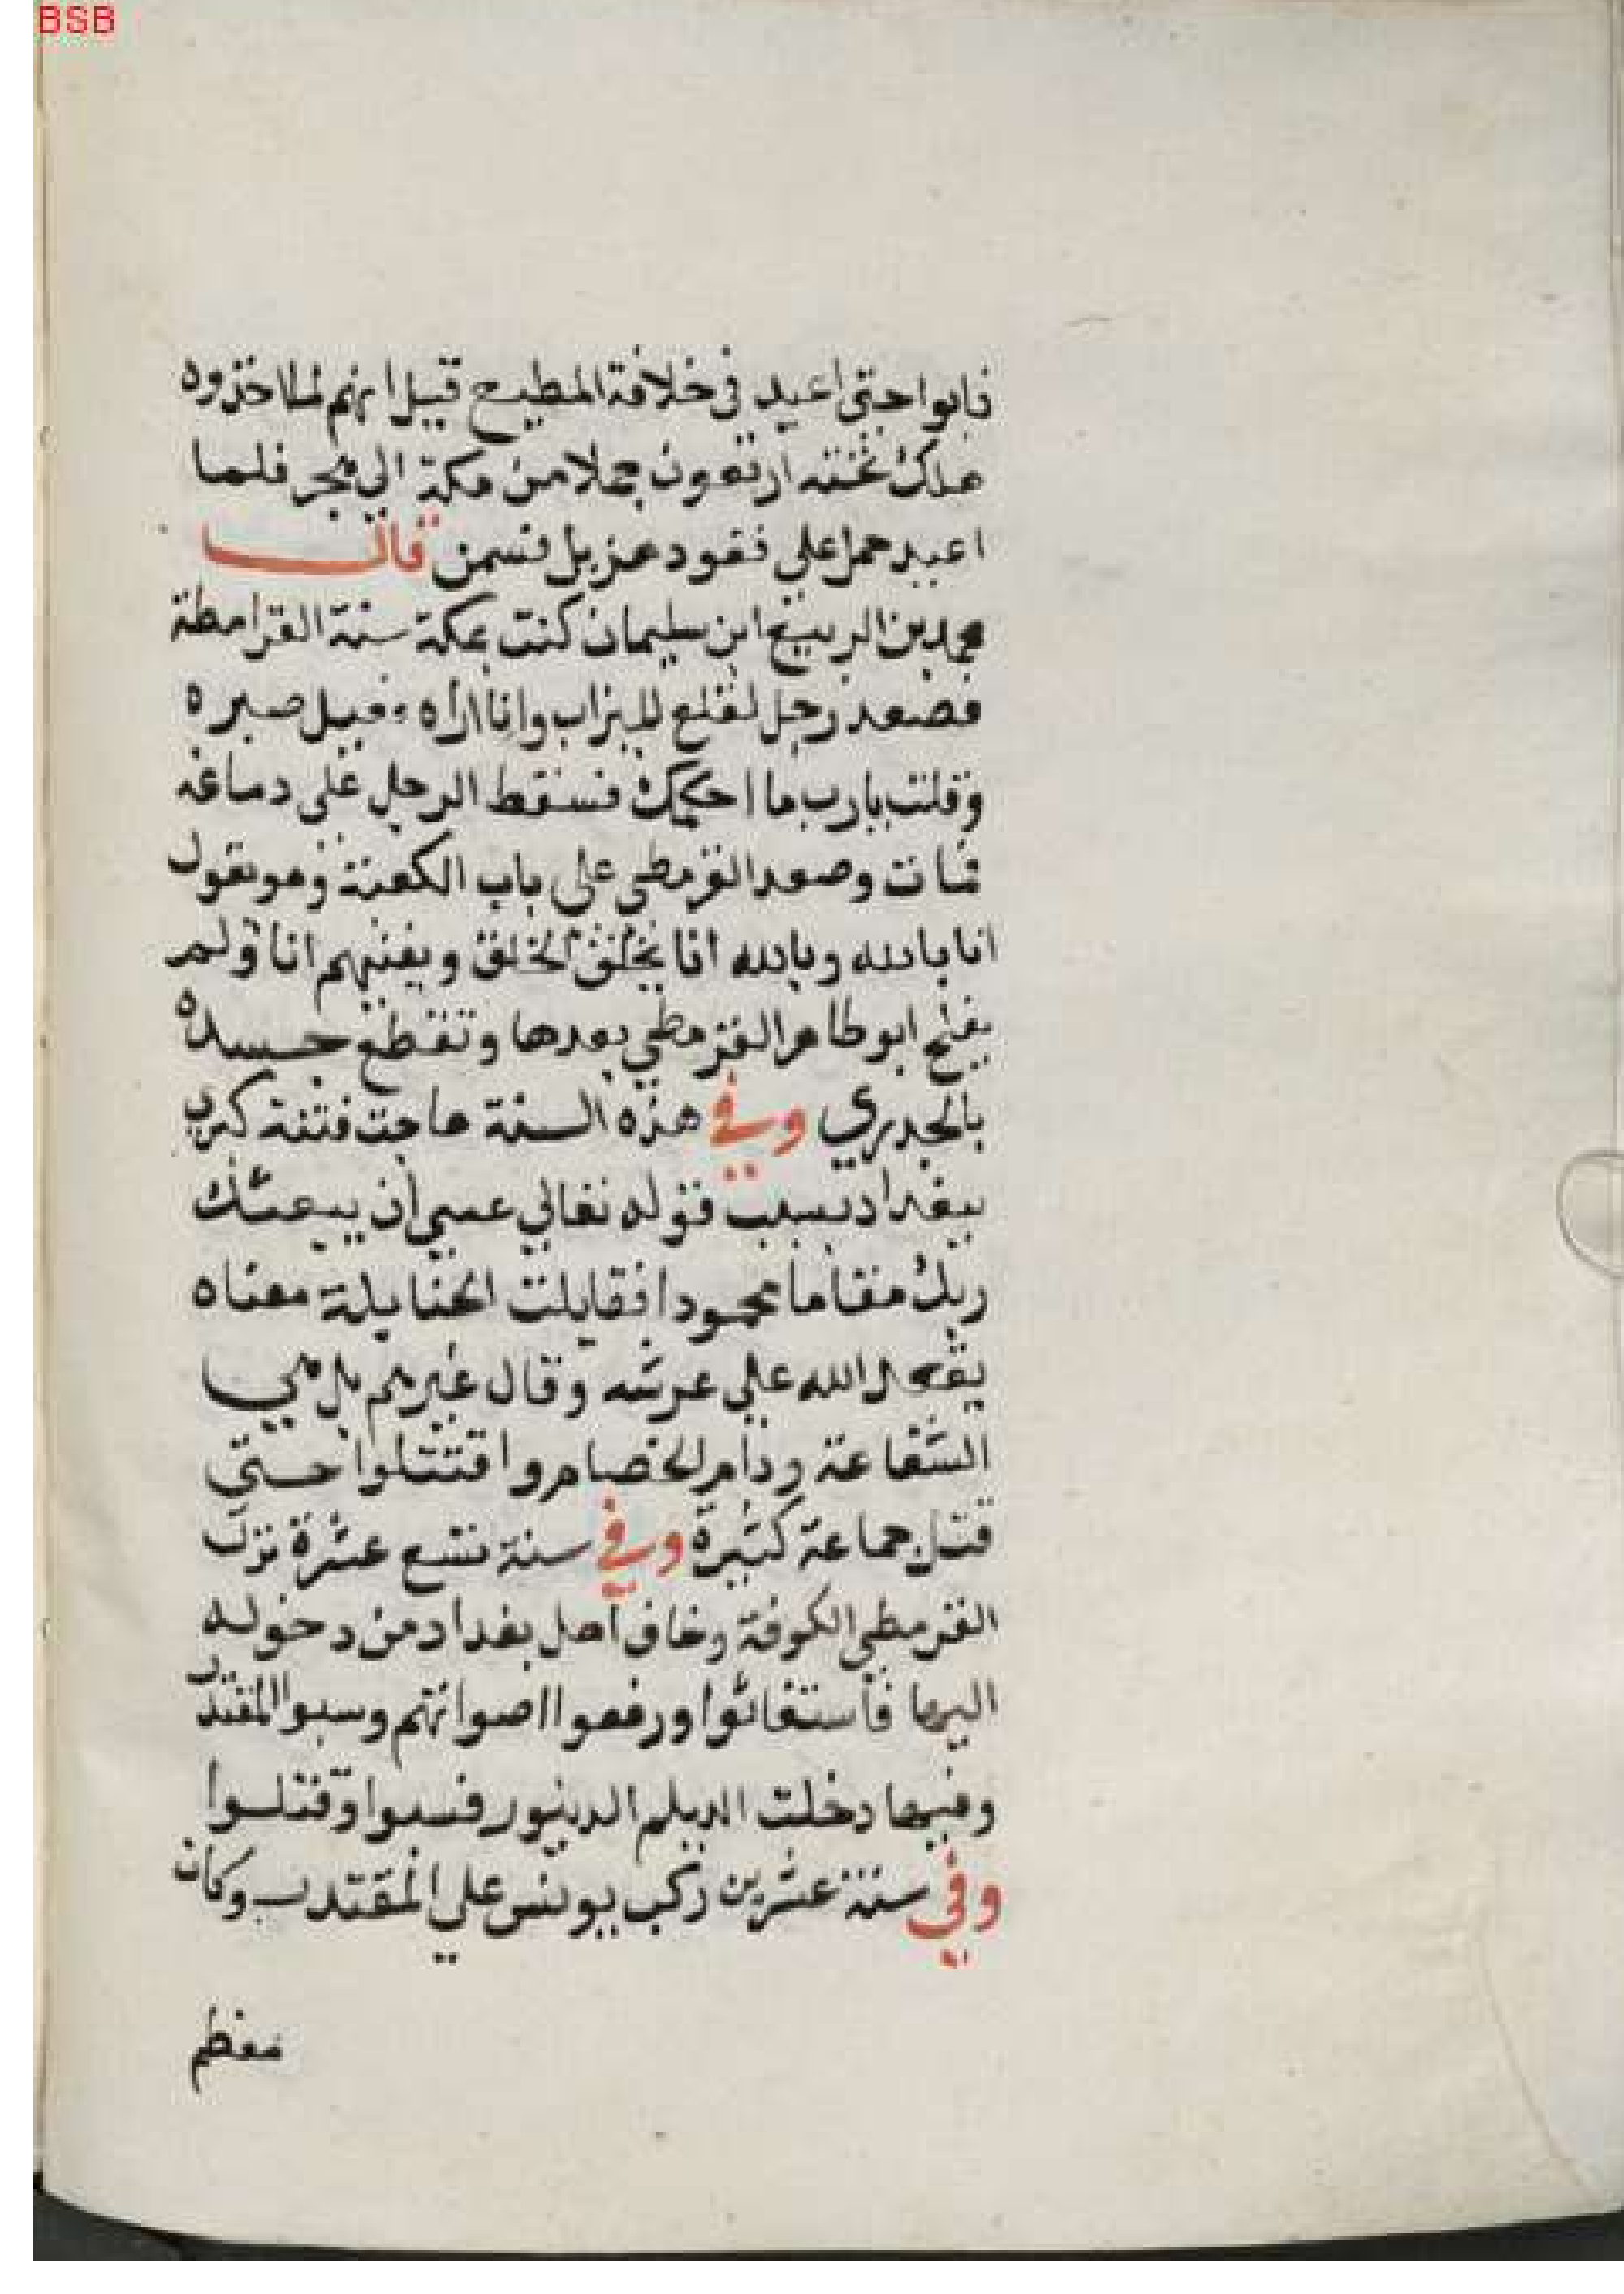 BSB
فابوا حتى اعيد في خلافة المطيع قيل انهم لما اخذوه
هلك تحته اربعون جملا من مكة الي هجر فلما
اعيد حمل علي قعود هزيل فسمن قال
محمد بن الربيع ابن سليمان كنت بمكة سنة القرامطة
فصعد رجل لقلع الميزاب وانا اراه فعيل صبره
وقلت يارب ما احلمك فسقط الرجل على دماغه
فمات وصعد القرمطي على باب الكعبة وهو يقول
انا بالله وبالله انا يخلق الخلق ويفنيهم انا ولم
يفلح ابو طاهر القرمطي بعدها وتقطع جسده
بالجدري وفي هذه السنة هاجت فتنة كبري
ببغداد بسبب قوله تعالي عسي ان يبعثك
ربك مقاما محمودا فقالت الحنابلة معناه
يقعد الله علي عرشه وقال غيرهم بل هي
الشفاعة ودام الخصام واقتتلوا حتي
قتل جماعة كثيرة وفي سنة تسع عشرة نزل
القرمطي الكوفة وخاف اهل بغداد من دخوله
اليها فاستغاثوا ورفعوا اصواتهم وسبوا المقتدر
وفيها دخلت الديلم الدينور فسبوا وقتلوا
وفي سنة عشرين ركب يونس علي المقتدر وكان
معظم